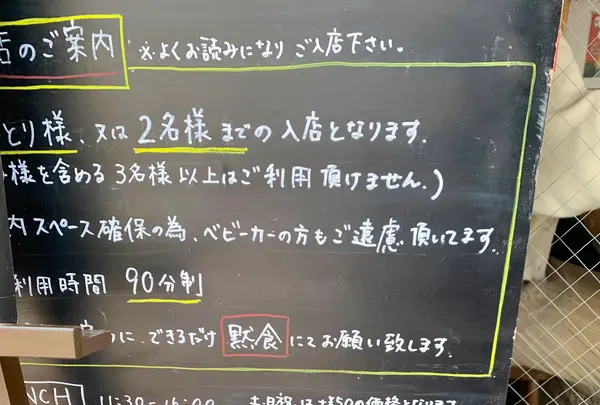 店のご案内 ※よくお読みになりご入店下さい。
とり様、又は2名様までの入店となります。
様を含める3名様以上はご利用頂けません。)
内スペース確保の為、ベビーカーの方もご遠慮頂いてます。
利用時間 90分制
に、できるだけ 黙食 にてお願い致します。
NCH 11:30-16:00